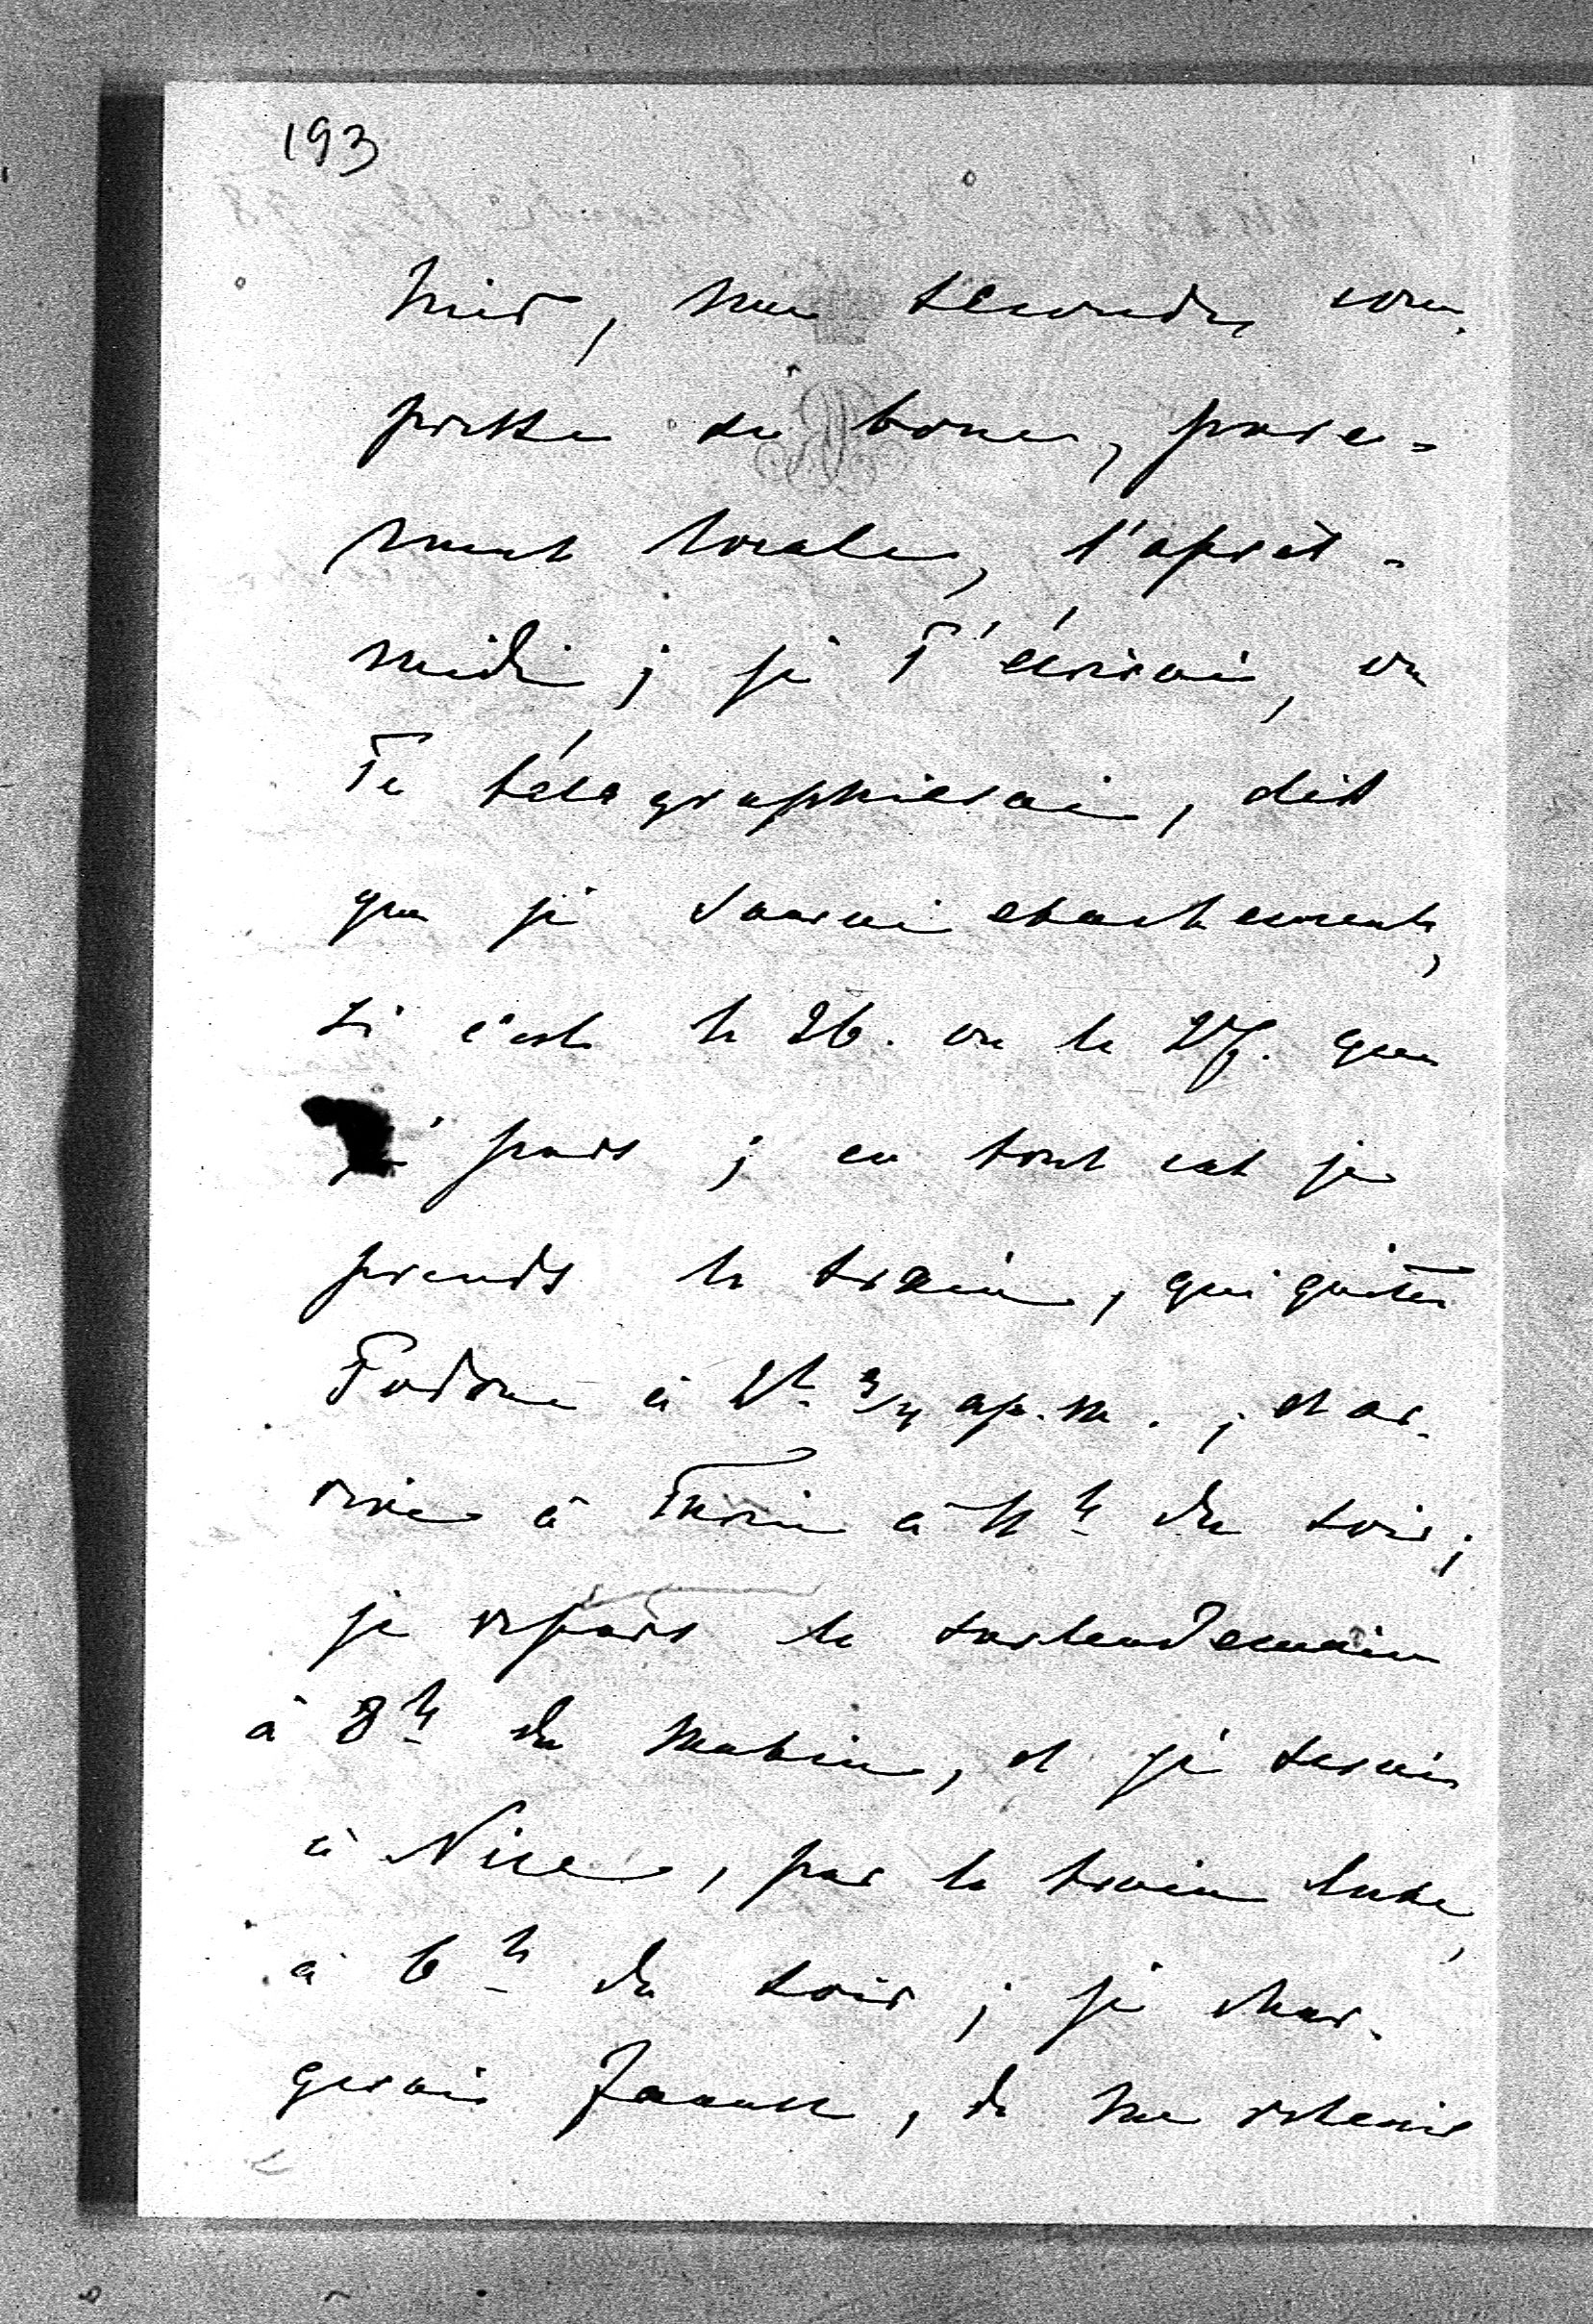 193
nir, une seconde com-
presse de boue, pure-
ment locale, l'après-
midi ; je T'écrirai, ou
Te télégraphierai, dès
que je saurai exactement,
si c'est le 26. ou le 27. que
je pars ; en tout cas je
prends le train, qui quitte
Padoue à 2h 3/4 ap. m. ; et ar-
rive à Turin à 11h du soir ;
je repars le surlendemain
à 8h du matin, et je serai
à Nice, par le train luxe,
à 6h du soir ; je char-
gerai , de me retenir